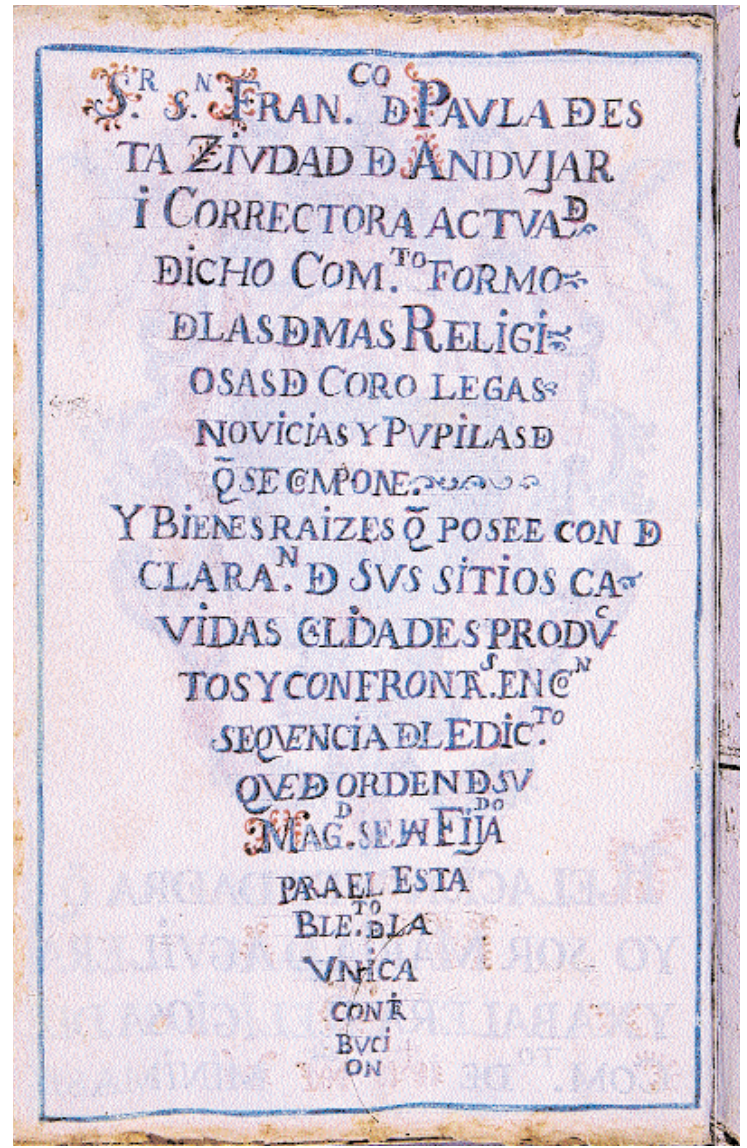 S.R S.N FRAN.CO D PAVLA DES
TA ZIVDAD D ANDVJAR
i CORRECTORA ACTVA D
DICHO COM.TO FORMO
D LAS DMAS RELIGI
OSAS D CORO LEGAS
NOVICIAS Y PVPILAS D
Q̃ SE COMPONE.
Y BIENES RAIZES Q̃ POSEE CON D
CLARA.N D SVS SITIOS CA
VIDAS CALIDADES PRODVC
TOS Y CONFRONTA.S EN CON
SEQVENCIA DL EDIC.TO
QVE D ORDEN D SV
MAG.D SE HA FIJADO
PARA EL ESTA
BLE.TO D LA
VNICA
CONTR
BVCI
ON